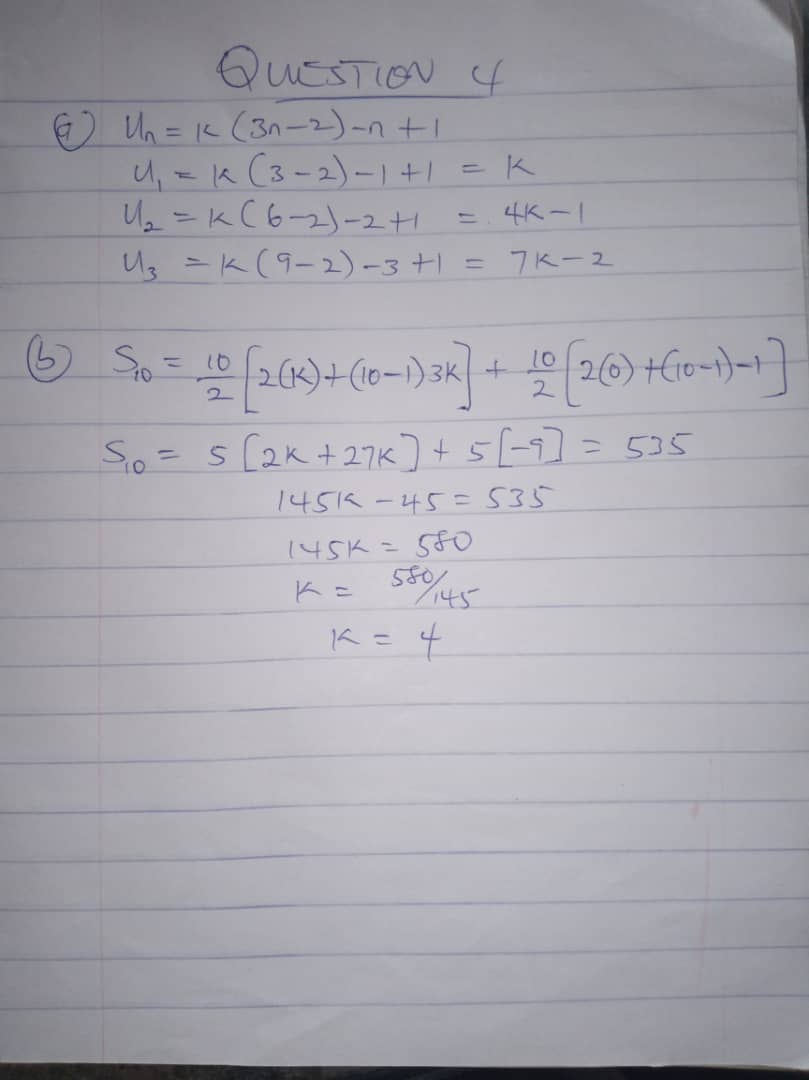 QUESTION 4
(a) Un = k (3n-2)-n+1
U₁ = k (3-2)-1+1 = k
U₂ = k (6-2)-2+1 = 4k-1
U₃ = k (9-2)-3+1 = 7k-2
(b) S₁₀ = 10/2 [2(k)+(10-1)3k] + 10/2 [2(0)+(10-1)-1]
S₁₀ = 5 [2k+27k] + 5[-9] = 535
145k - 45 = 535
145k = 580
k = 580/145
k = 4